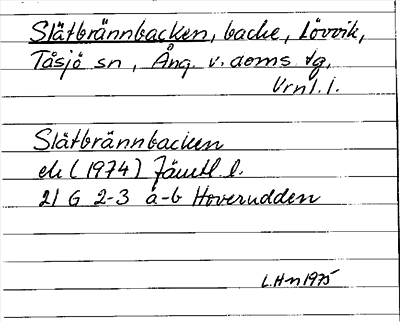 Slätbrännbacken, backe, Lövvik,
Tåsjö sn, Ång. v. doms dg,
Vrnl. l.
Slätbrännbacken
ek (1974) Jämtl. l.
21 G 2-3 a-b Hoverudden
L.H-n 1975